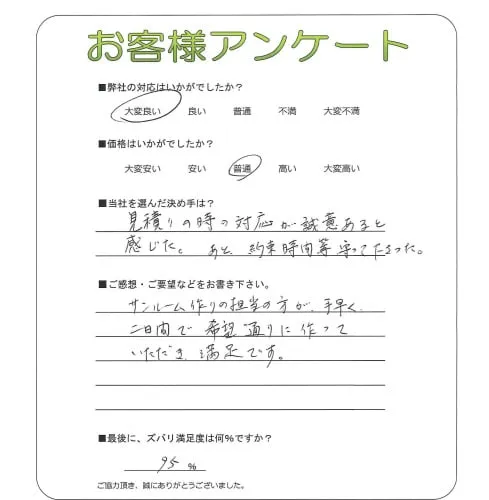 お客様アンケート
■弊社の対応はいかがでしたか？
大変良い 良い 普通 不満 大変不満
■価格はいかがでしたか？
大変安い 安い 普通 高い 大変高い
■当社を選んだ決め手は？
見積りの時の対応が誠意あると
感じた。あと、約束時間等守って下さった。
■ご感想・ご要望などをお書き下さい。
サンルーム作りの担当の方が、手早く、
二日間で希望通りに作って
いただき、満足です。
■最後に、ズバリ満足度は何％ですか？
95 %
ご協力頂き、誠にありがとうございました。